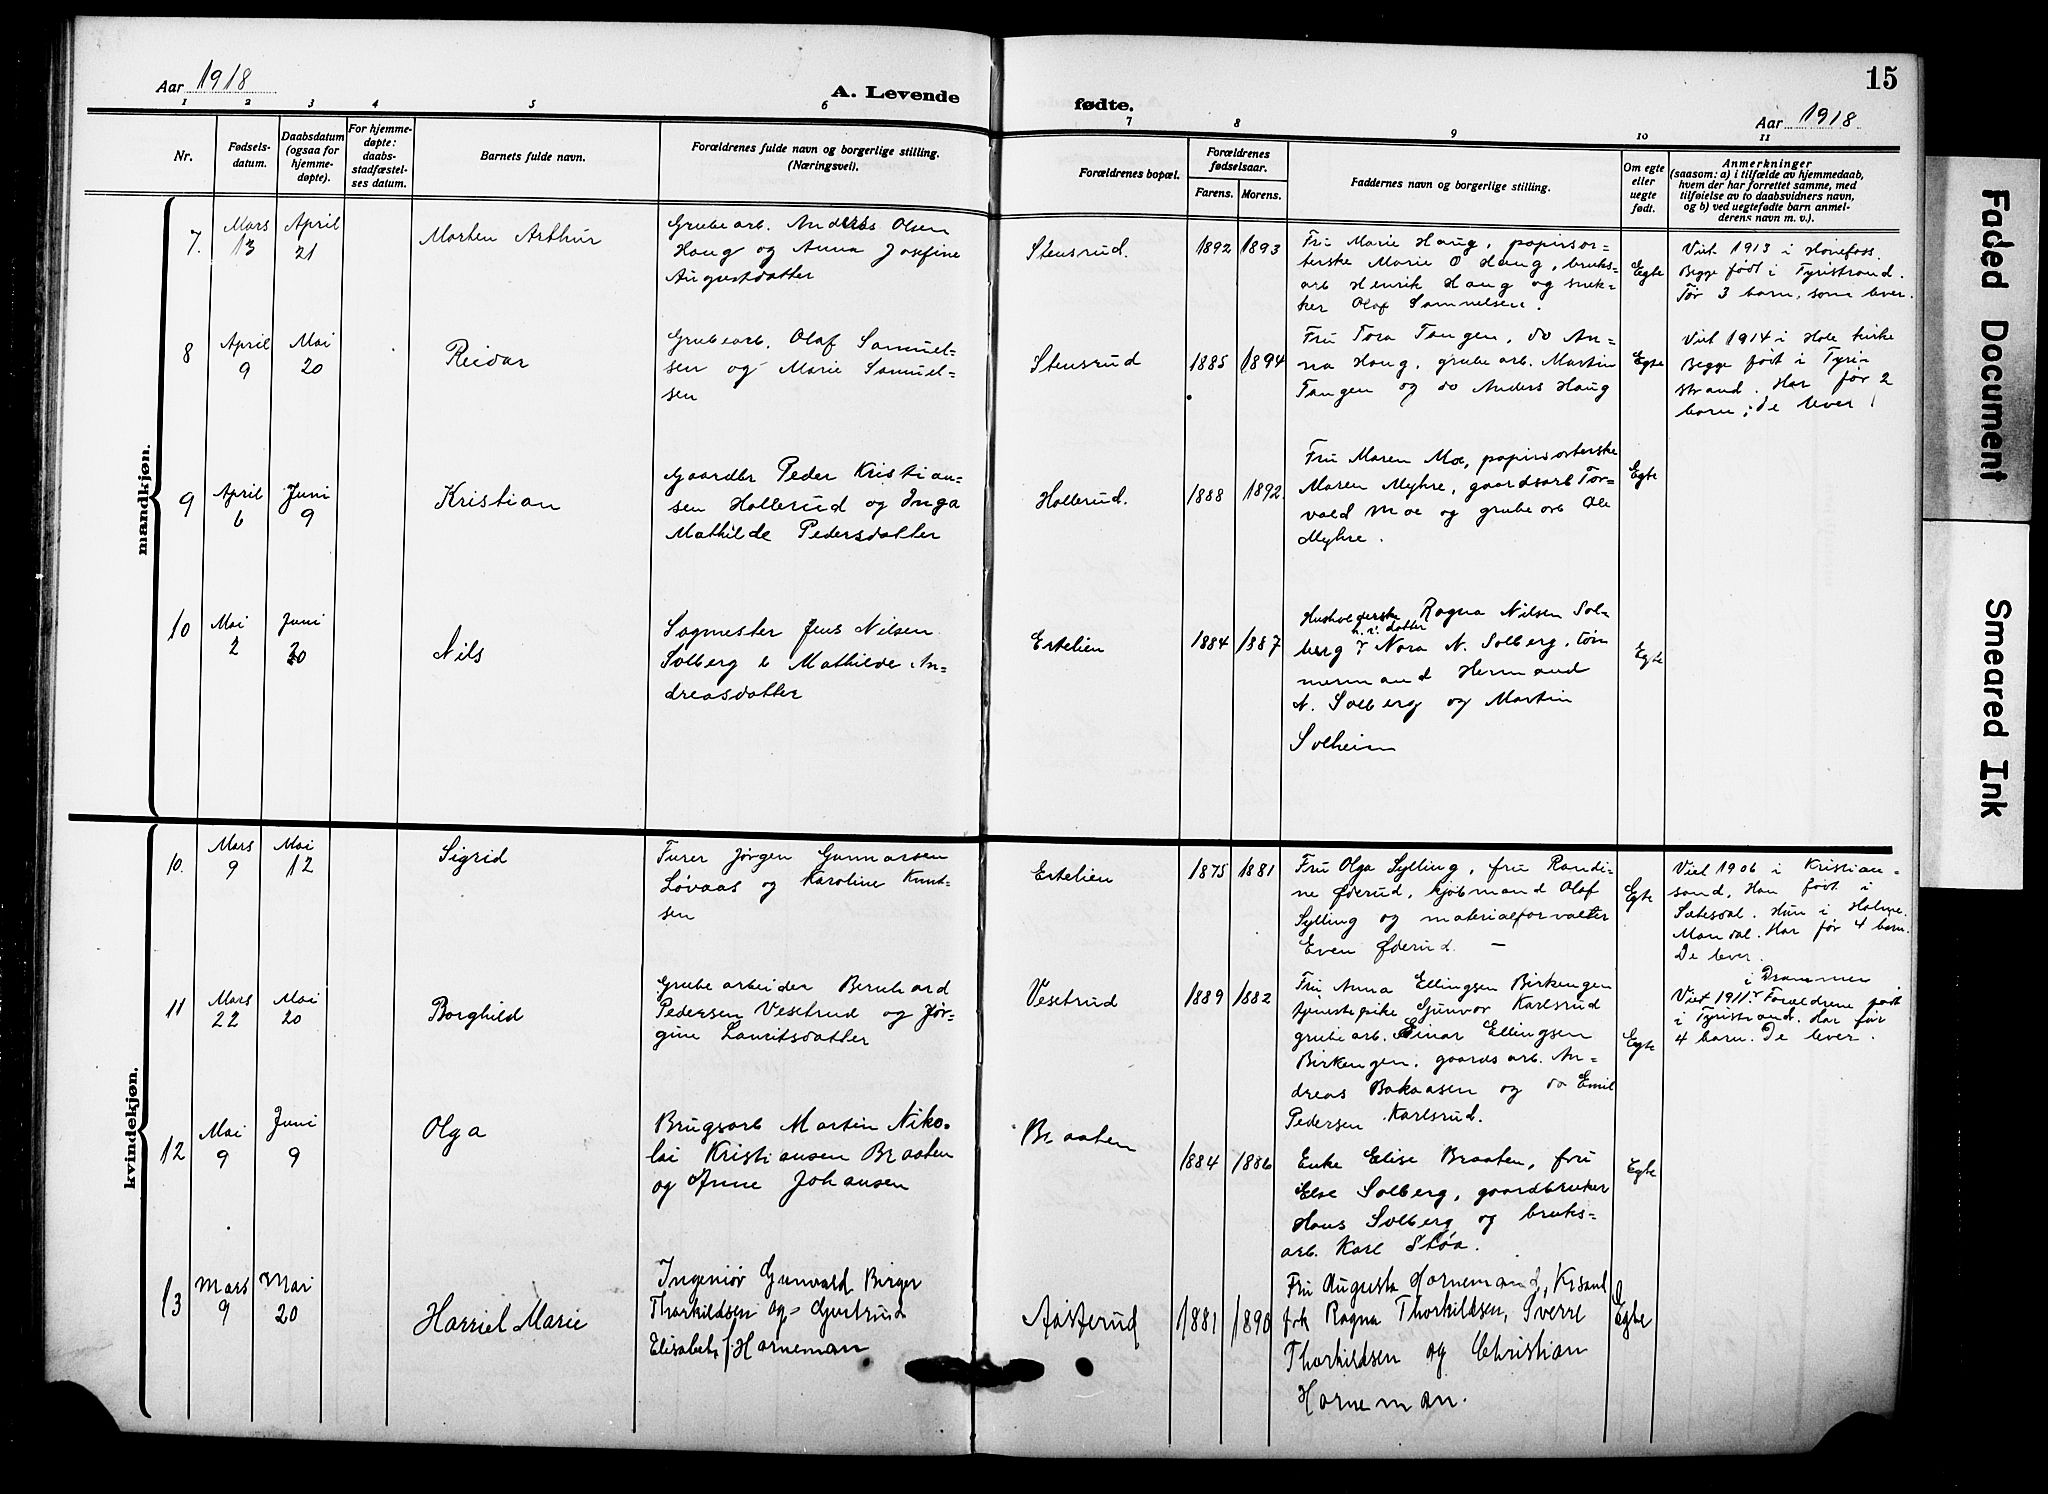 Aar 1918
A. Levende
fødte.
15
Aar 1918
1 2 3 4 5 6 7 8 9 10 11
Nr.
Fødsels-
datum.
Daabsdatum
(ogsaa for
hjemme-
døpte).
For hjemme-
døpte:
daabs-
stadfæstel-
ses datum.
Barnets fulde navn.
Forældrenes fulde navn og borgerlige stilling.
(Næringsvei).
Forældrenes bopæl.
Forældrenes
fødselsaar.
Farens. Morens.
Faddernes navn og borgerlige stilling.
Om egte
eller
uegte
født.
Anmerkninger
(saasom: a) i tilfælde av hjemmedaab,
hvem der har forrettet samme, med
tilføielse av to daabsvidners navn,
og b) ved uegtefødte barn anmel-
derens navn m. v.).
mandkjøn.
7.
Mars
13
April
21
Morten Arthur
Grubearb. Anders Olsen
Haug og Anna Josefine
Augustdatter
Stensrud.
1892 1893
Fru Marie Haug, papirsor-
terske Marie O Haug, bruks-
arb Henrik Haug og snek-
ker Olaf Samuelsen.
Egte
Viet 1913 i Hønefoss.
Begge født i Tyristrand.
Før 3 barn, som lever.
8
April
9
Mai
20
Reidar
Grubearb. Olaf Samuel-
sen og Marie Samuel-
sen
Stensrud
1885 1894
Fru Tora Tangen, do An-
na Haug, grubearb. Martin
Tangen og do Anders Haug
Egte
Viet 1914 i Hole kirke
Begge født i Tyri-
strand. Har før 2
barn; de lever
9
April
6
Juni
9
Kristian
Gaardbr Peder Kristian-
sen Hollerud og Inga
Mathilde Pedersdatter
Hollerud.
1888 1892.
Fru Maren Moe, papirsorterske
Maren Myhre, gaardsarb Tor-
vald Moe og grubearb Ole
Myhre.
Egte
10
Mai
2
Juni
20
Nils
Sagmester Jens Nilsen
Solberg & Mathilde An-
dreasdatter
Estelien
1884 1887
Husholderske Ragna Nilsen Sol-
berg, Nora N. Solberg, tøm
mermand Hermand
N. Solberg og Martin
Solheim
Egte
kvindekjøn.
10.
Mars
9
Mai
12
Sigrid
Furer Jørgen Gunnarsen
Løvaas og Karoline Knut-
sen
Estelien
1875 1881
Fru Olga Sylling, fru Randi-
ne Øderud, kjøbmand Olaf
Sylling og materialforvalter
Even Øderud. —
Egte
Viet 1906 i Kristian-
sand. Han født i
Sætesdal. Hun i Holme.
Mandal. Har før 4 barn.
De lever.
11
Mars
22
Mai
20
Borghild
Grubearbeider Bernhard
Pedersen Vesetrud og Jør-
gine Lauritsdatter
Vesetrud
1889 1882
Fru Anna Ellingsen Birkengen
tjenestepike Gunvor Karlsrud
grubearb. Einar Ellingsen
Birkengen, gaardsarb. An-
dreas Bakaasen og do Emil
Pedersen Karlsrud.
Egte
i Drammen
Viet 1911. Forældrene født
i Tyristrand. Har før
4 barn. De lever.
12
Mai
9
Juni
9
Olga
Brugsarb Martin Niko-
lai Kristiansen Braaten
og Anne Johansen
Braaten
1884 1886
Enke Elise Braaten, fru
Else Solberg, gaardbruker
Hans Solberg og bruks-
arb. Karl Støa.
Egte
13
Mars
9
Mai
20
Harriet Marie
Ingeniør Gunvald Birger
Thorkildsen og Gjertrud
Elisabet f. Horneman
Aasterud
1881 1890
Fru Augusta Hornemand, Krsand
frk Ragna Thorkildsen, Sverre
Thorkildsen og Christian
Horneman.
Egte
Faded Document
Smeared Ink